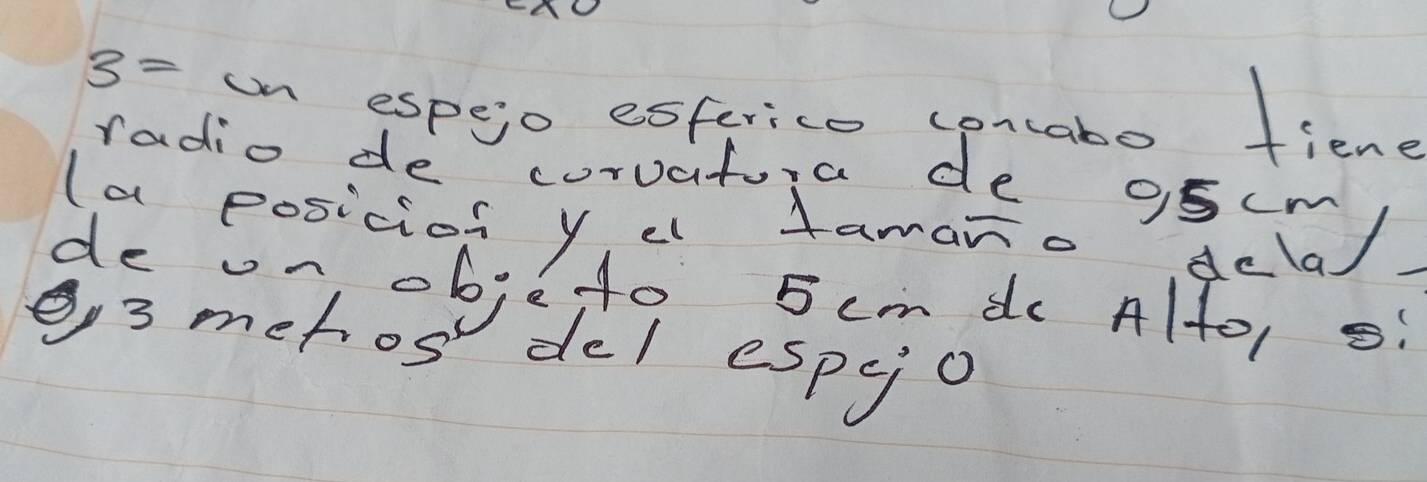 3= un espejo esferico concabo tiene
radio de corvatura de 0,5 cm,
la posicion y el tamaño dela
de un objeto 5 cm de Alto, si
0,3 metros del espejo